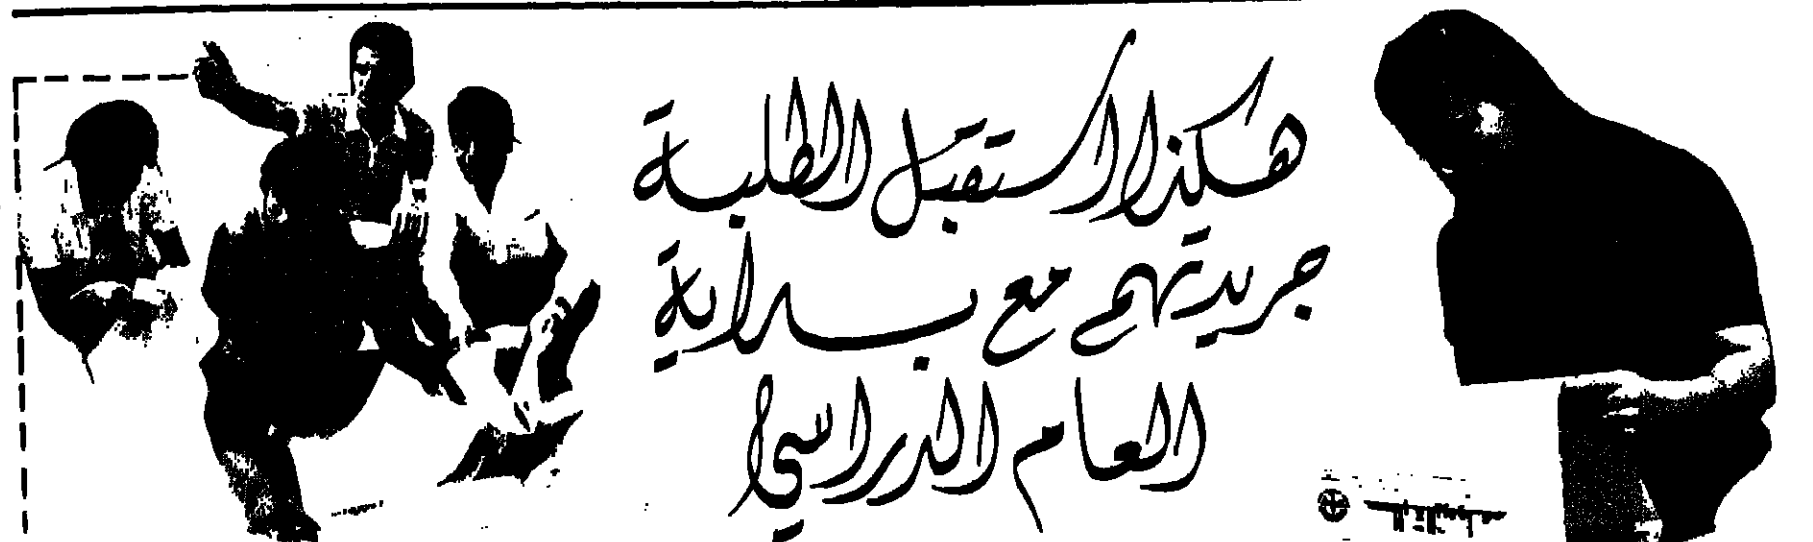 هكذا استقبل الطلبة
جريدتهم مع بداية
العام الدراسي